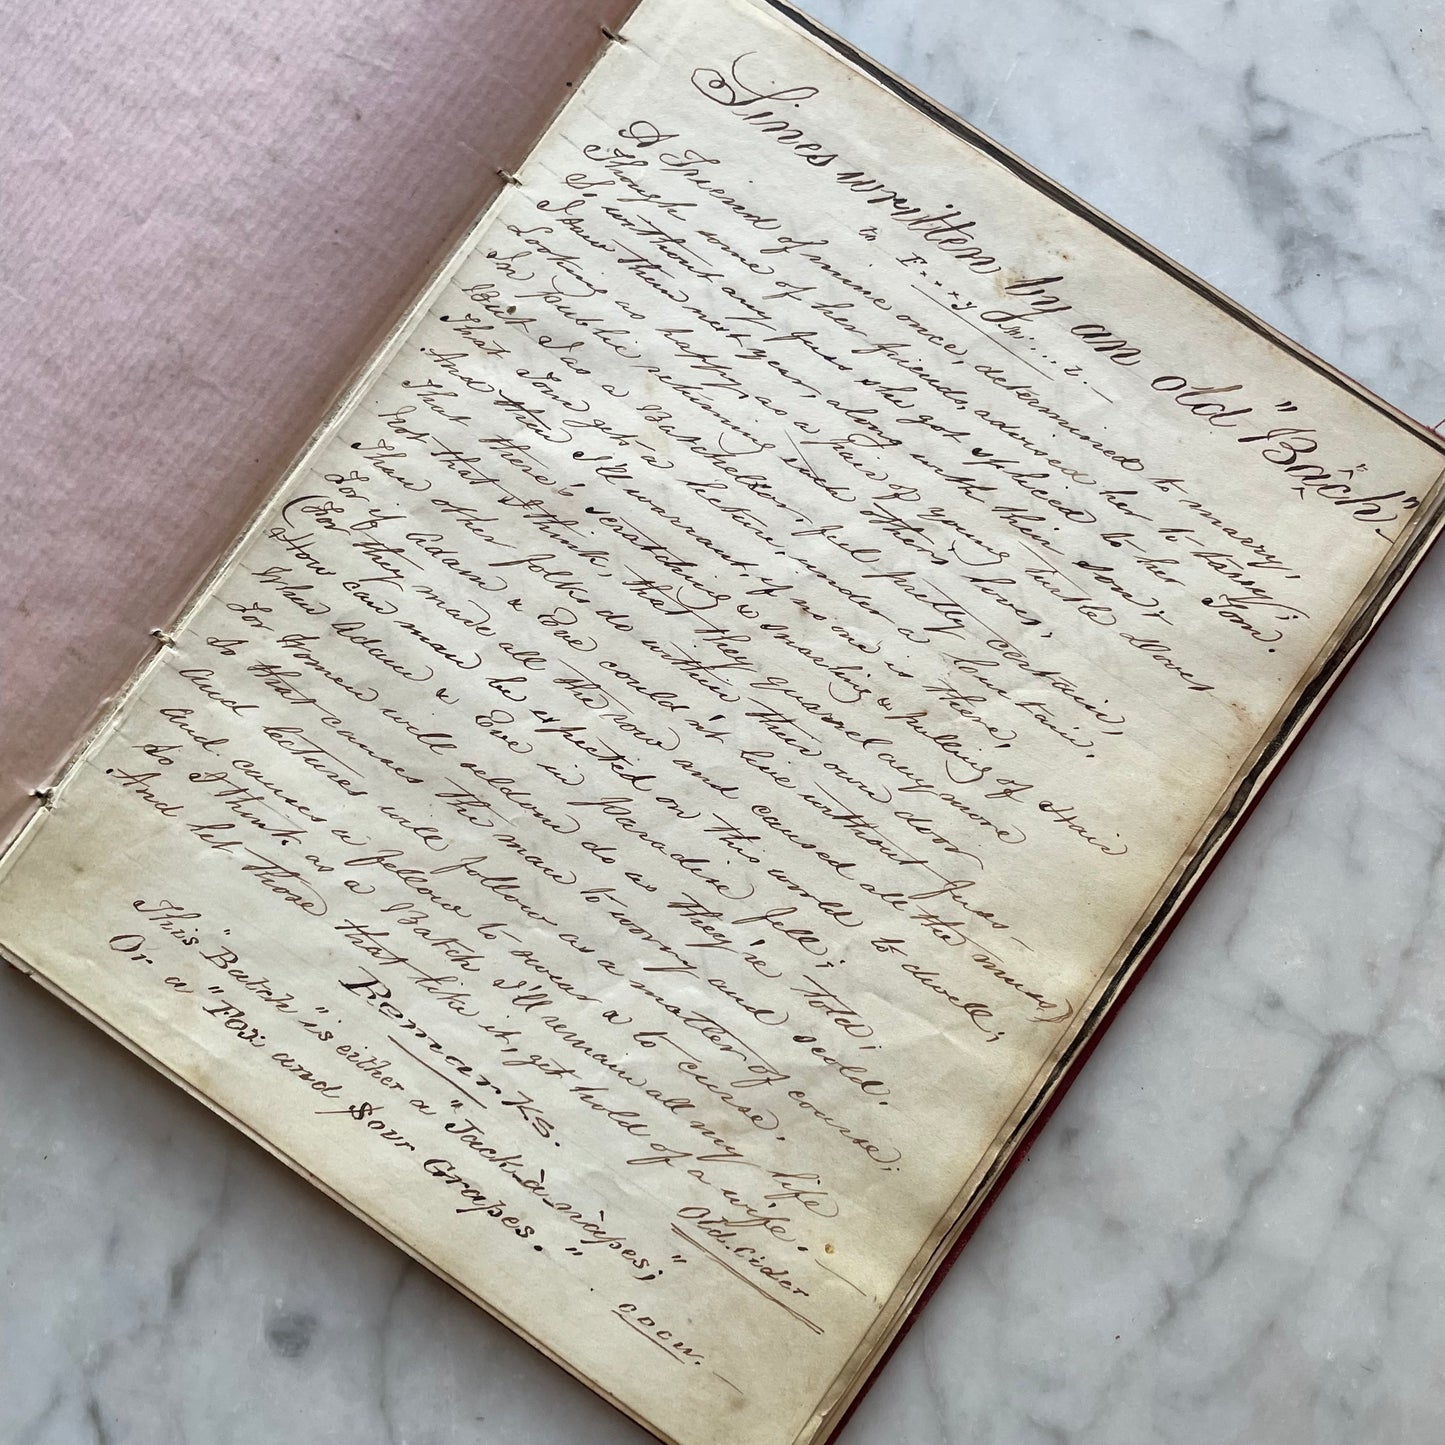 Lines written by an old "Bâch".
to F...y M....r.
A Friend of mine once, determined to marry,
Though some of her friends, advised her to tarry;
So without any fuss she got spliced to her Tom.
I saw them next year, along with their son;
Looking as happy, as a pair of young turtle doves
In public, returning each others loves;
But I as a Batchellor, feel pretty certain,
That Tom gets a lecture, under a curtain,
And then I'll warrant, if no one is there,
That there's scratching & snarling & pulling of Hair
Not that I think, that they quarrel any more
Than other folks do within their own door
For if Adam & Eve could n't live without fuss—
(For they made all the row and caused all the muss)
How can man be expected on this world to dwell;
When Adam & Eve in Paradise fell;
For Women will seldom do as they're told;
So that causes the man to worry and scold.
And lectures will follow as a matter of course;
And causes a fellow to swear & to curse.
So I think as a Batch I'll remain all my life
And let those that like it, get hold of a wife.—
Old. Cider
Remarks.
This "Batch" is either a "Jack-à-nàpes;"
Or a "Fox and Sour Grapes."